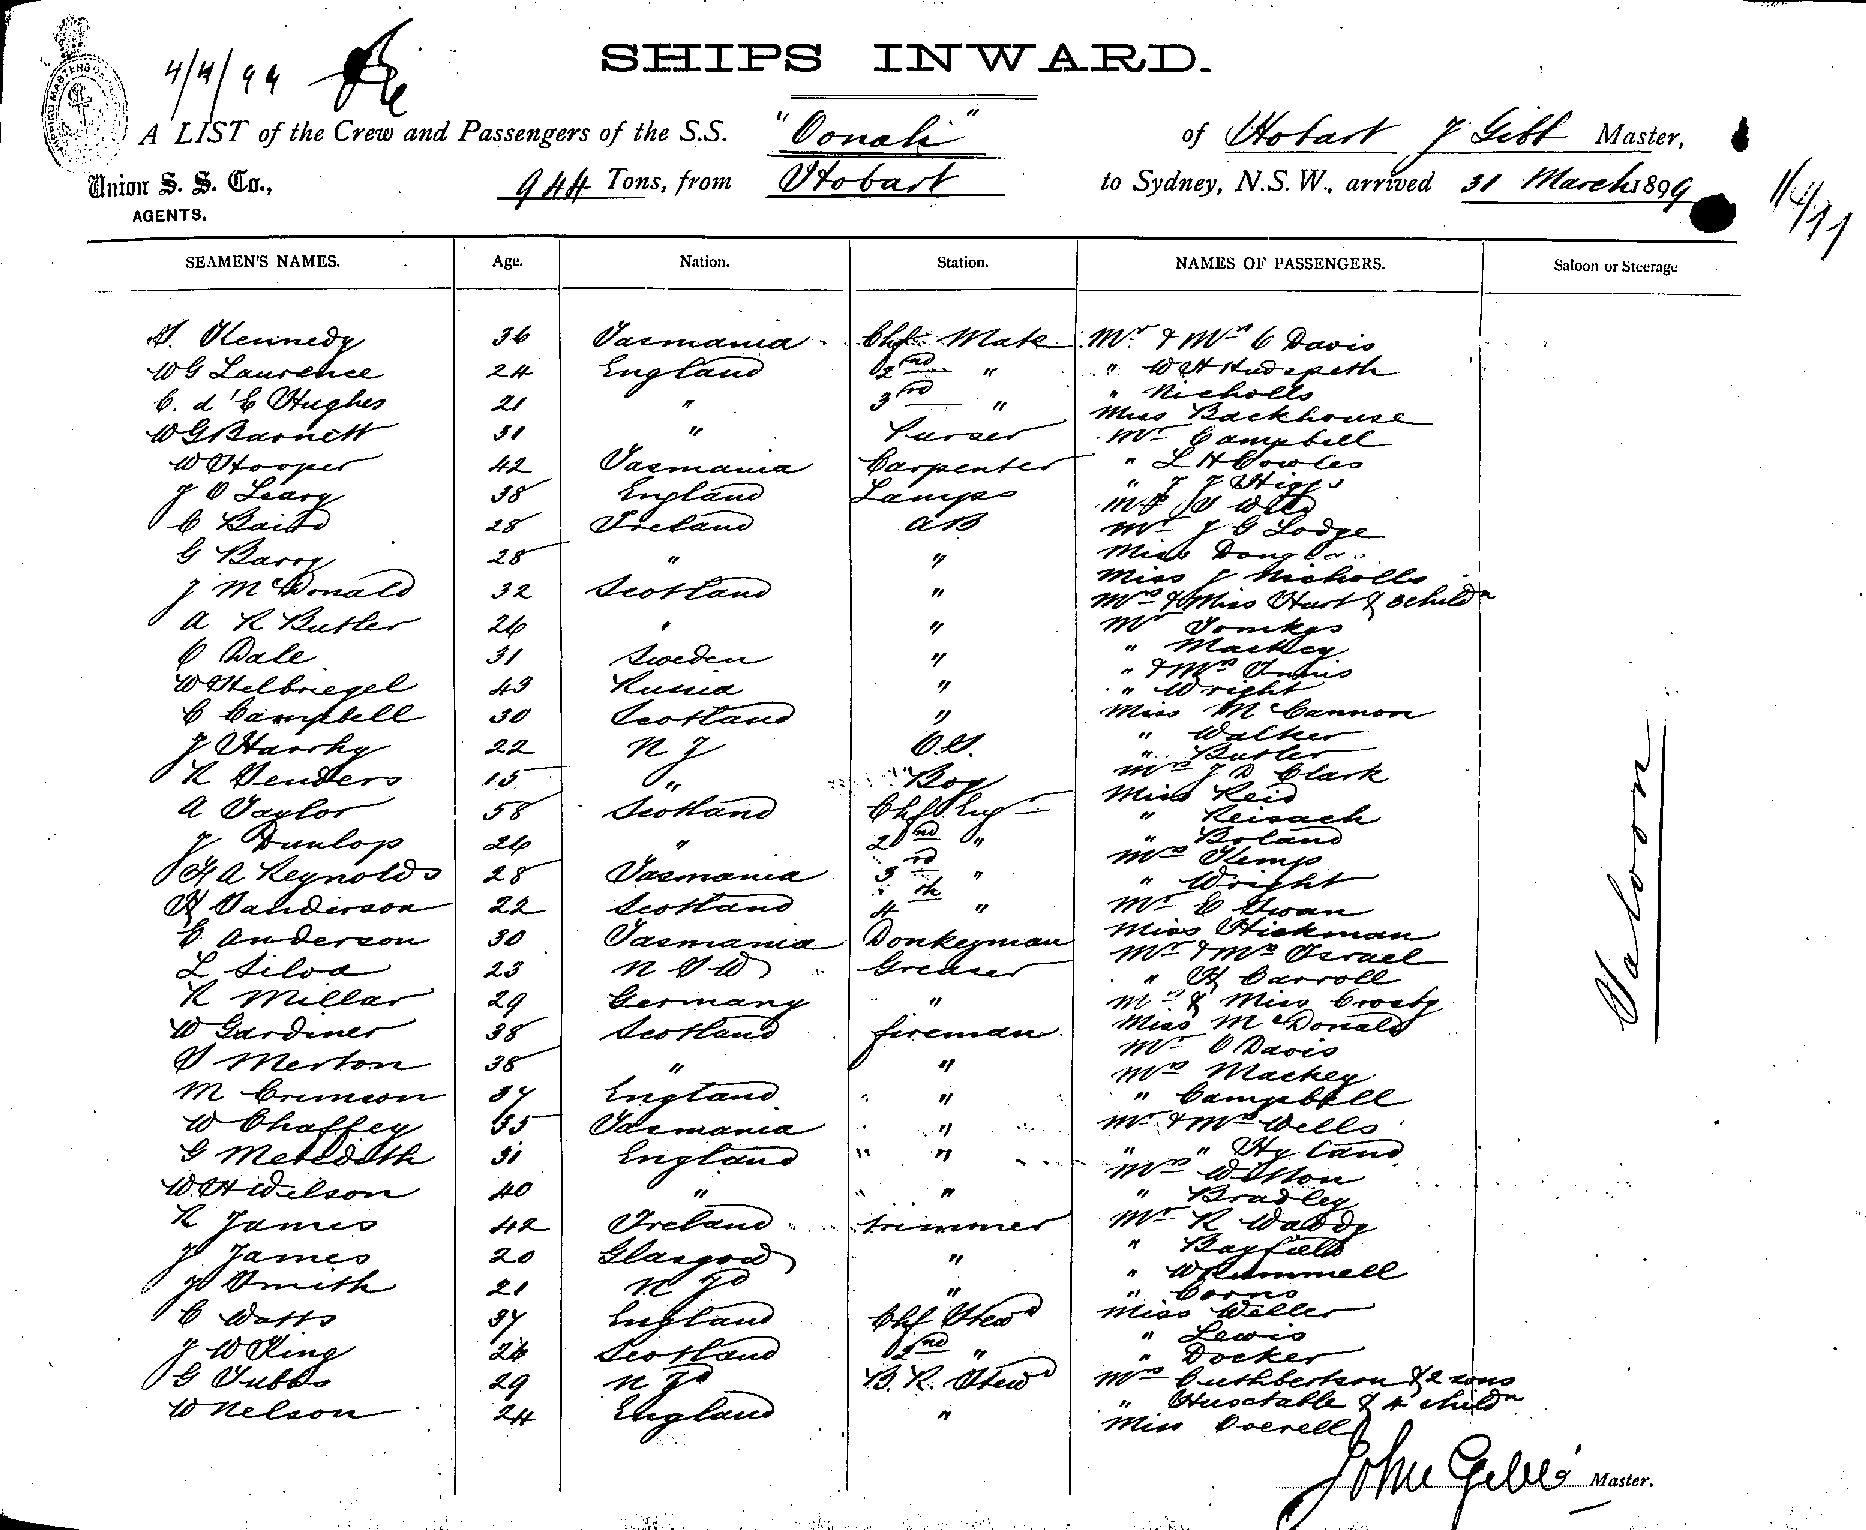 SHIPS INWARD.
4/4/99
A LIST of the Crew and Passengers of the S.S. "Oonah" of Hobart J Gibb Master,
Union S. S. Co., AGENTS.
944 Tons, from Hobart to Sydney, N.S.W., arrived 31 March 1899
SEAMEN'S NAMES. Age. Nation. Station. NAMES OF PASSENGERS. Saloon or Steerage
S. Kennedy 36 Tasmania Chf Mate Mr & Mrs C Davis
W G Laurence 24 England 2nd " " W H Hudspeth
C. d'E Hughes 21 " 3rd " " Nicholls
Miss Backhouse
W G Barnett 31 " Purser Mr Campbell
W Hooper 42 Tasmania Carpenter " L H Cowles
J O Leary 38 England Lamps " J J Higgs
C Baird 28 Ireland AB Mr J G Lodge
G Barry 28 " " Miss Douglas
J McDonald 32 Scotland " Miss J Nicholls
Mrs & Miss Hurt & 3 childn
A R Butler 26 " " Mr Tomkys
C Dale 31 Sweden " " Mackey
" & Mrs Innis
W Helbriegel 43 Russia " " Wright
C Campbell 30 Scotland " Miss McCannon
J Harrhy 22 N Z O.S. " Walker
" Butler
R Senders 15 " Boy Mrs J D Clark
A Taylor 58 Scotland Chf Eng Miss Reid
" Reisach
J Dunlop 26 " 2nd " " Boland
Mrs Kemp
F A Reynolds 28 Tasmania 3rd " " Wright
H Sanderson 22 Scotland 4th " Mr C Swan
C Anderson 30 Tasmania Donkeyman Miss Hickman
L Silva 23 N S W Greaser Mr & Mrs Israel
" H Carroll
R Millar 29 Germany " Mrs & Miss Crosby
W Gardiner 38 Scotland fireman Miss McDonald
S Merton 38 " " Mr C Davis
Mrs Mackey
M Crimson 37 England " " Campbell
W Chaffey 35 Tasmania " Mr & Mrs Wells
G Meredith 31 England " " " Hyland
Mrs Wilson
W H Wilson 40 " " " Bradley
R James 42 Ireland trimmer Mr R Waddy
J James 20 Glasgow " " Bayfield
J Smith 21 N Zd " " W Rummell
" Corns
C Watts 37 England Chf Stewd Miss Weller
" Lewis
J W King 26 Scotland 2nd " " Docker
G Tubbs 29 N Zd B. R. Stewd Mrs Cuthbertson & 2 sons
W Nelson 24 England " " Huxtable & 4 childn
Miss Overell
Saloon
John Gibb Master.